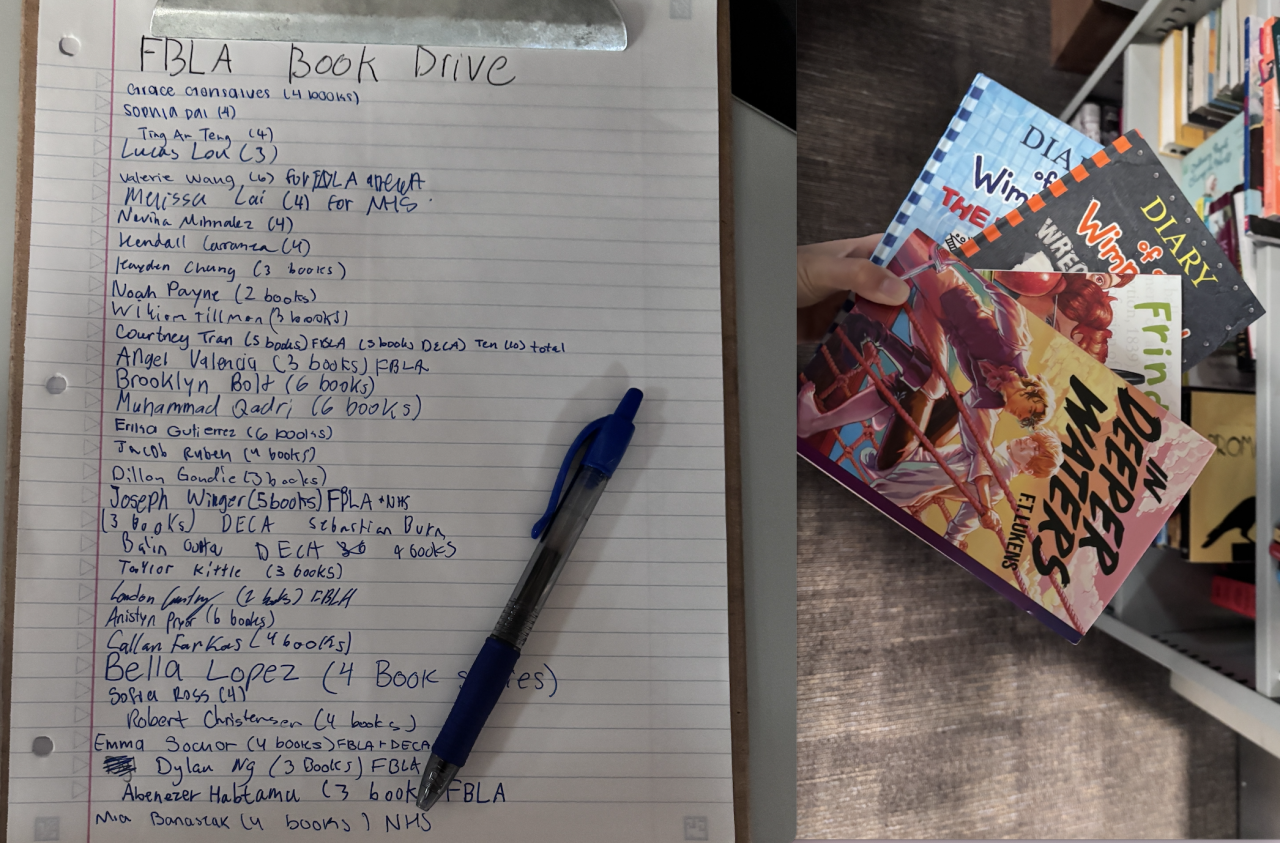 FBLA Book Drive
Grace Gonsalves (4 books)
Sophia Dai (4)
Ting An Teng (4)
Lucas Lou (3)
Valerie Wang (6) for FBLA + DECA
Melissa Lai (4) for NHS
(4)
Kendall Carranza (4)
Hayden Chung (3 books)
Noah Payne (2 books)
William Tillman (3 books)
Courtney Tran (5 books) FBLA (5 books DECA) Ten (10) total
Angel Valencia (3 books) FBLA
Brooklyn Bolt (6 books)
Muhammad Qadri (6 books)
Erika Gutierrez (6 books)
Jacob Ruben (4 books)
Dillon Gondie (3 books)
Joseph Winger (5 books) FBLA + NHS
(3 books) DECA Sebastian
DECA 4 books
Taylor Kittle (3 books)
London (2 books) FBLA
Anistyn Pryor (6 books)
Callan Farkas (4 books)
Bella Lopez (4 Book
Sofia Ross (4)
Robert Christensen (4 books)
Emma Sochor (4 books) FBLA + DECA
Dylan Ng (3 Books) FBLA
Abenezer Habtamu (3 book FBLA
Mia Banaszak (4 books) NHS
DIA
of a
Wim
THE
DIARY
of a
Wimp
WREC
Frind
IN
DEEPER
WATERS
F.T. LUKENS